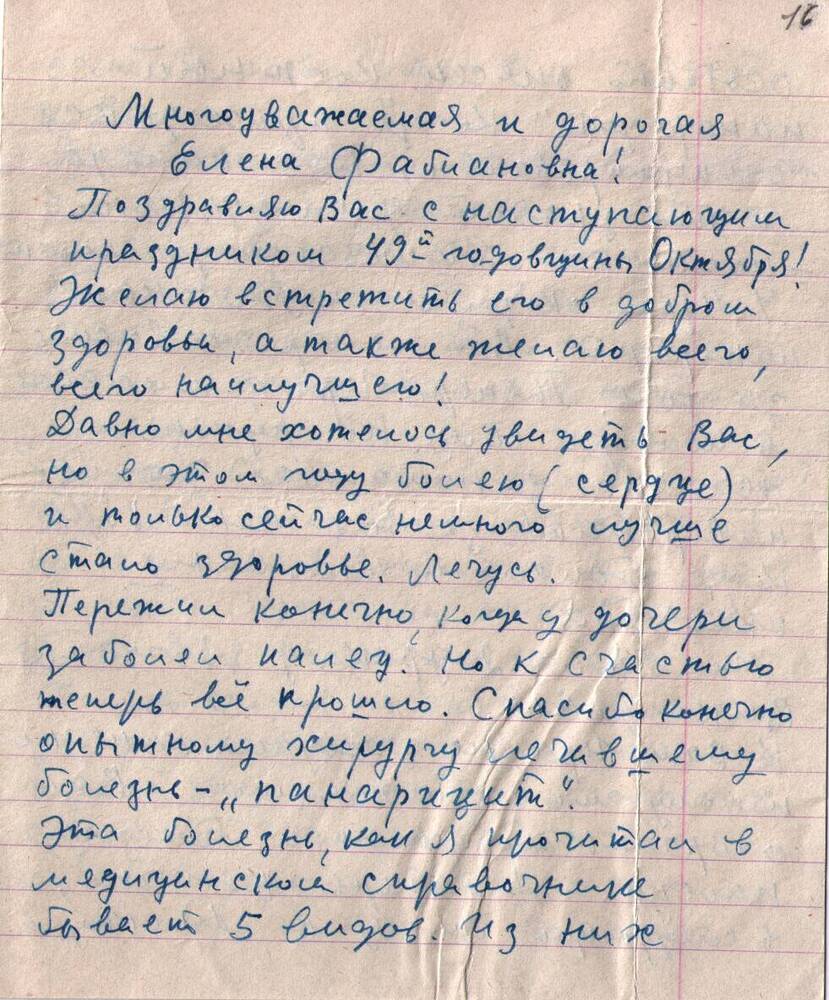 16
Многоуважаемая и дорогая
Елена Фабиановна!
Поздравляю Вас с наступающим
праздником 49й годовщины Октября!
Желаю встретить его в добром
здоровьи, а также желаю всего,
всего наилучшего!
Давно мне хотелось увидеть Вас,
но в этом году болею (сердце)
и только сейчас немного лучше
стало здоровье. Лечусь.
Пережил конечно, когда у дочери
заболел палец. Но к счастью
теперь всё прошло. Спасибо конечно
опытному хирургу лечившему
болезнь – „панарицит".
Эта болезнь, как я прочитал в
медицинском справочнике
бывает 5 видов. Из них